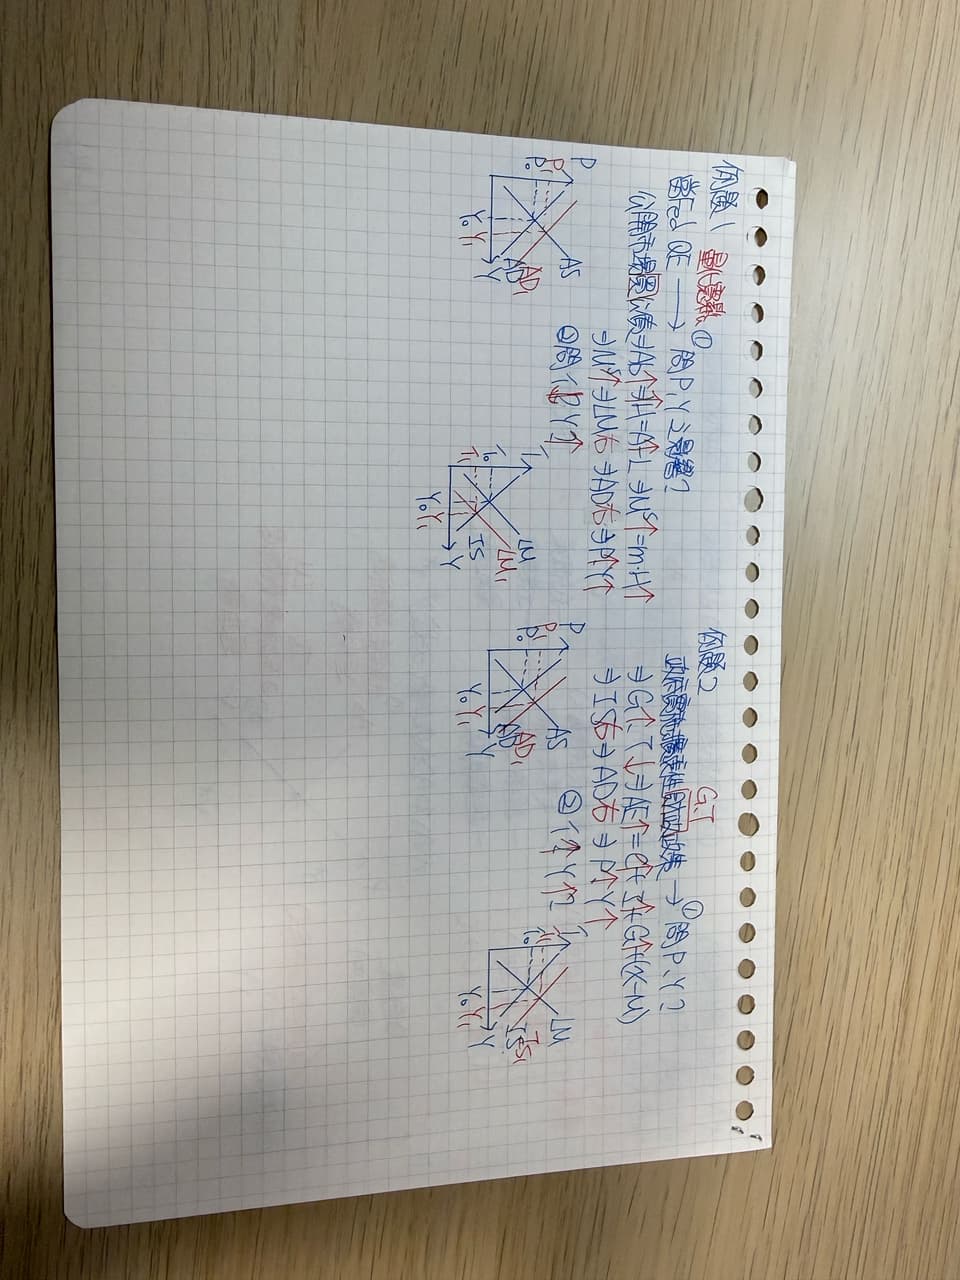 例題1 量化寬鬆
當Fed QE → ①問P、Y之影響?
公開市場買入債 ⇒ Ab↑ ⇒ H=A↑+L ⇒ M^S↑=m·H↑
⇒ M^S↑ ⇒ LM右 ⇒ AD右 ⇒ P↑Y↑
②問 i↓? Y↑
P
P₁
P₀
AS
AD₁
AD
Y₀ Y₁ Y
i
i₀
i₁
LM
LM₁
IS
Y₀ Y₁ Y
例題2
G、T
政府實施擴張性財政政策 → ①問P、Y?
⇒ G↑、T↓ ⇒ AE↑=C↑+I↑+G↑+(X-M)
⇒ IS右 ⇒ AD右 ⇒ P↑Y↑
② i↑ Y↑?
P
P₁
P₀
AS
AD₁
AD
Y₀ Y₁ Y
i
i₁
i₀
LM
IS₁
IS
Y₀ Y₁ Y